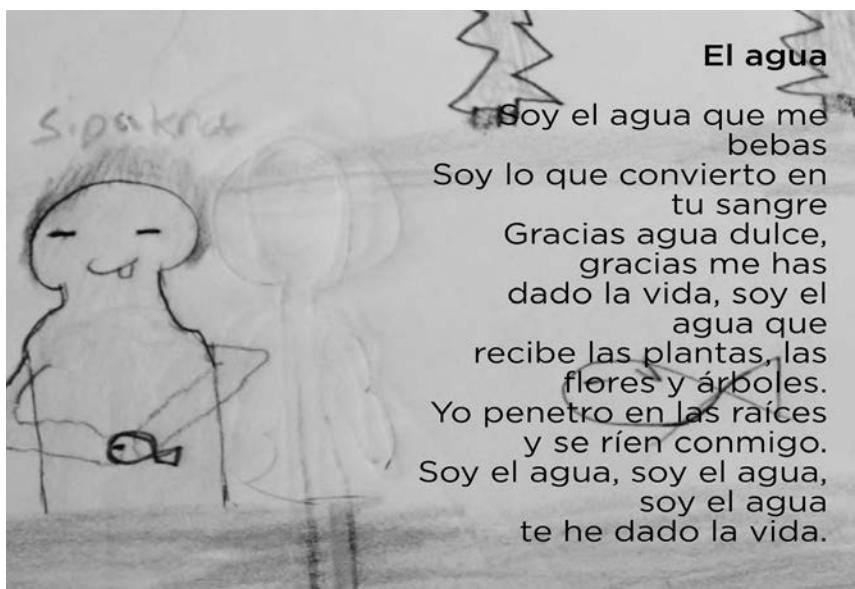 El agua
Soy el agua que me
bebas
Soy lo que convierto en
tu sangre
Gracias agua dulce,
gracias me has
dado la vida, soy el
agua que
recibe las plantas, las
flores y árboles.
Yo penetro en las raíces
y se ríen conmigo.
Soy el agua, soy el agua,
soy el agua
te he dado la vida.